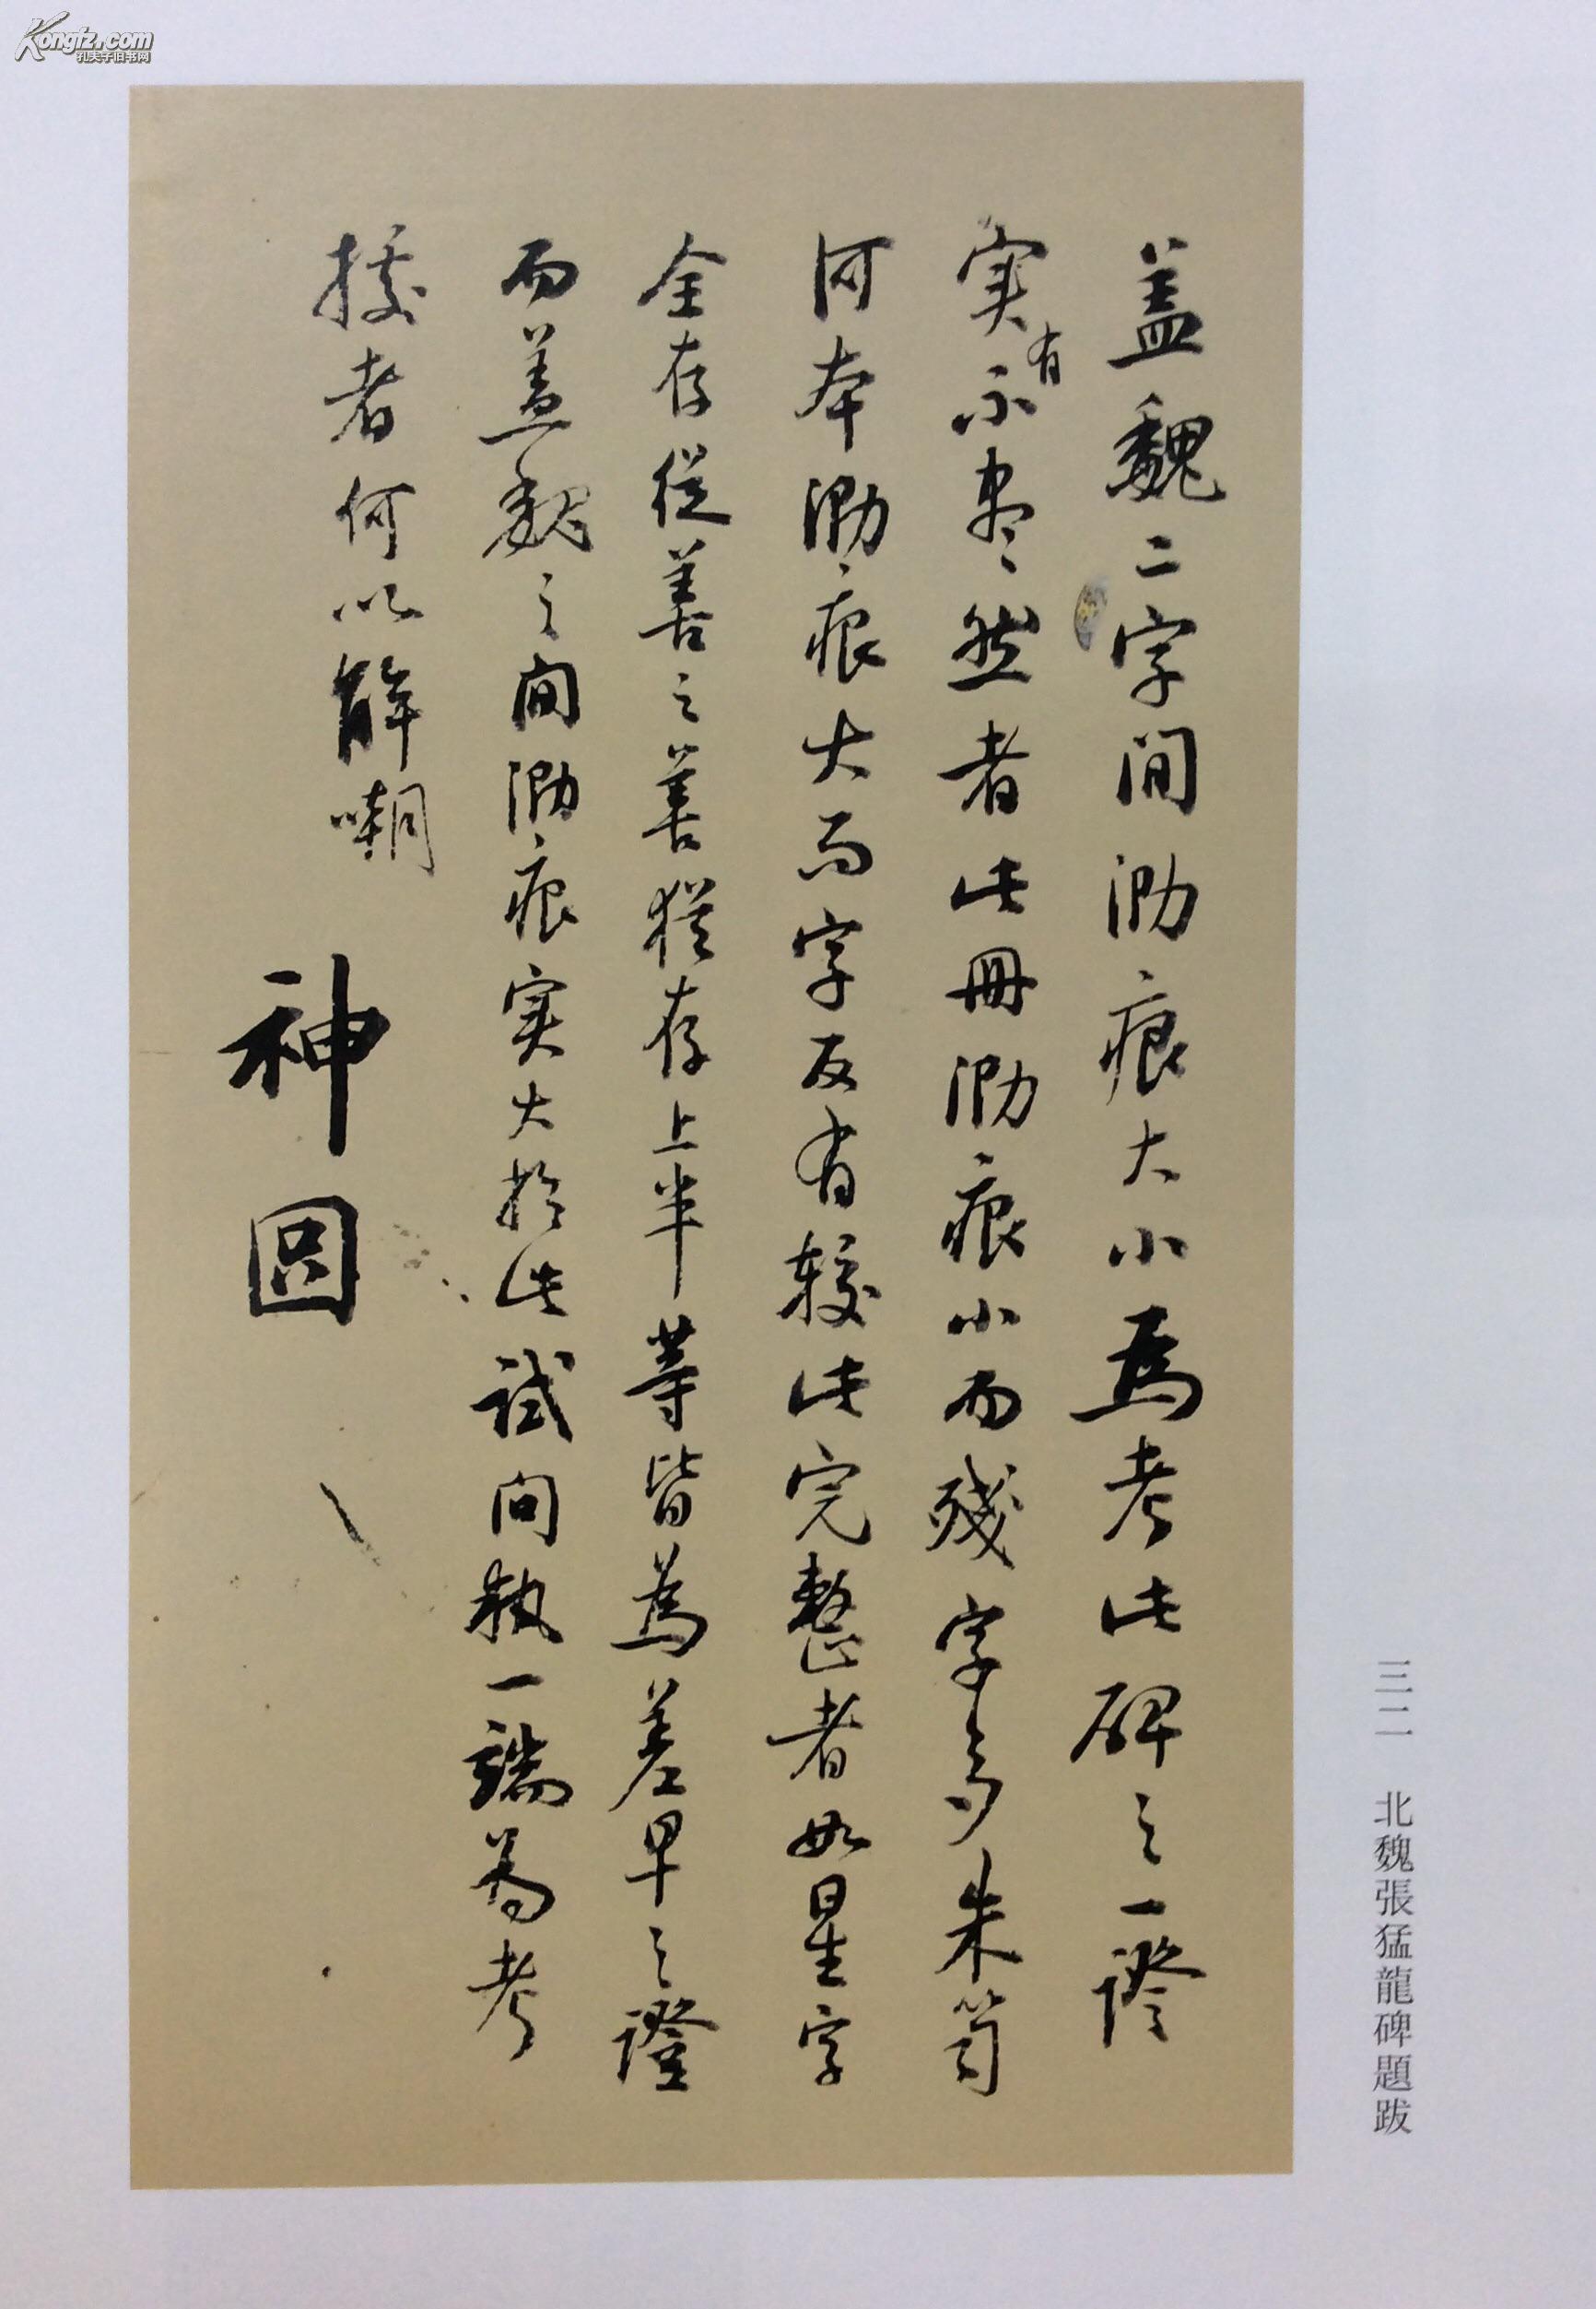 盖魏二字间泐痕大小為考此碑之一證
实有不尽然者此冊泐痕小而殘字多朱笥
河本泐痕大而字反有较此完整者如星字
全存從善之善猶存上半等皆為差早之證
而盖魏之间泐痕实大於此試问執一端为考
據者何以解嘲
神圆
三二 北魏張猛龍碑題跋
Kongfz.com
孔夫子旧书网